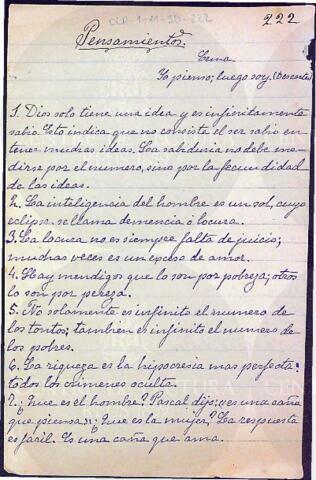 CLR-1-11-SD-222
222
Pensamientos.
Lema
Yo pienso; luego soy. (Descartes)
1. Dios solo tiene una idea y es infinitamente
sabio. Esto indica que no consiste el ser sabio en
tener muchas ideas. La sabiduria no debe me-
dirse por el numero, sino por la fecundidad
de las ideas.
2. La inteligencia del hombre es un sol, cuyo
eclipse se llama demencia ó locura.
3. La locura no es siempre falta de juicio;
muchas veces es un exceso de amor.
4. Hay mendigos que lo son por pobreza; otros
lo son por pereza.
5. No solamente es infinito el numero de
los tontos; tambien es infinito el numero de
los pobres.
6. La riqueza es la hipocresia mas perfecta:
todos los crimenes oculta.
7. ¿Que es el hombre? Pascal dijo: «es una caña
que piensa»; ¿Que es la mujer? La respuesta
es facil. Es una caña que ama.